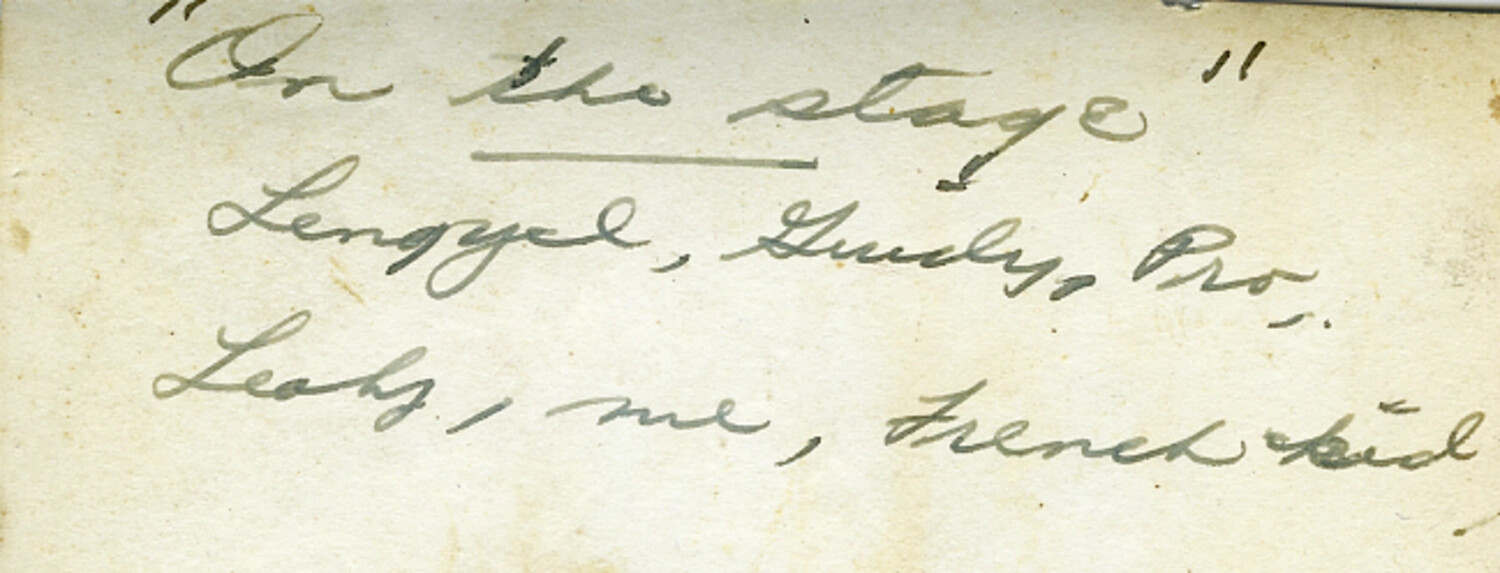 "On the stage"
Lengyel, Grudy, Pro,
Leahy, me, French kid